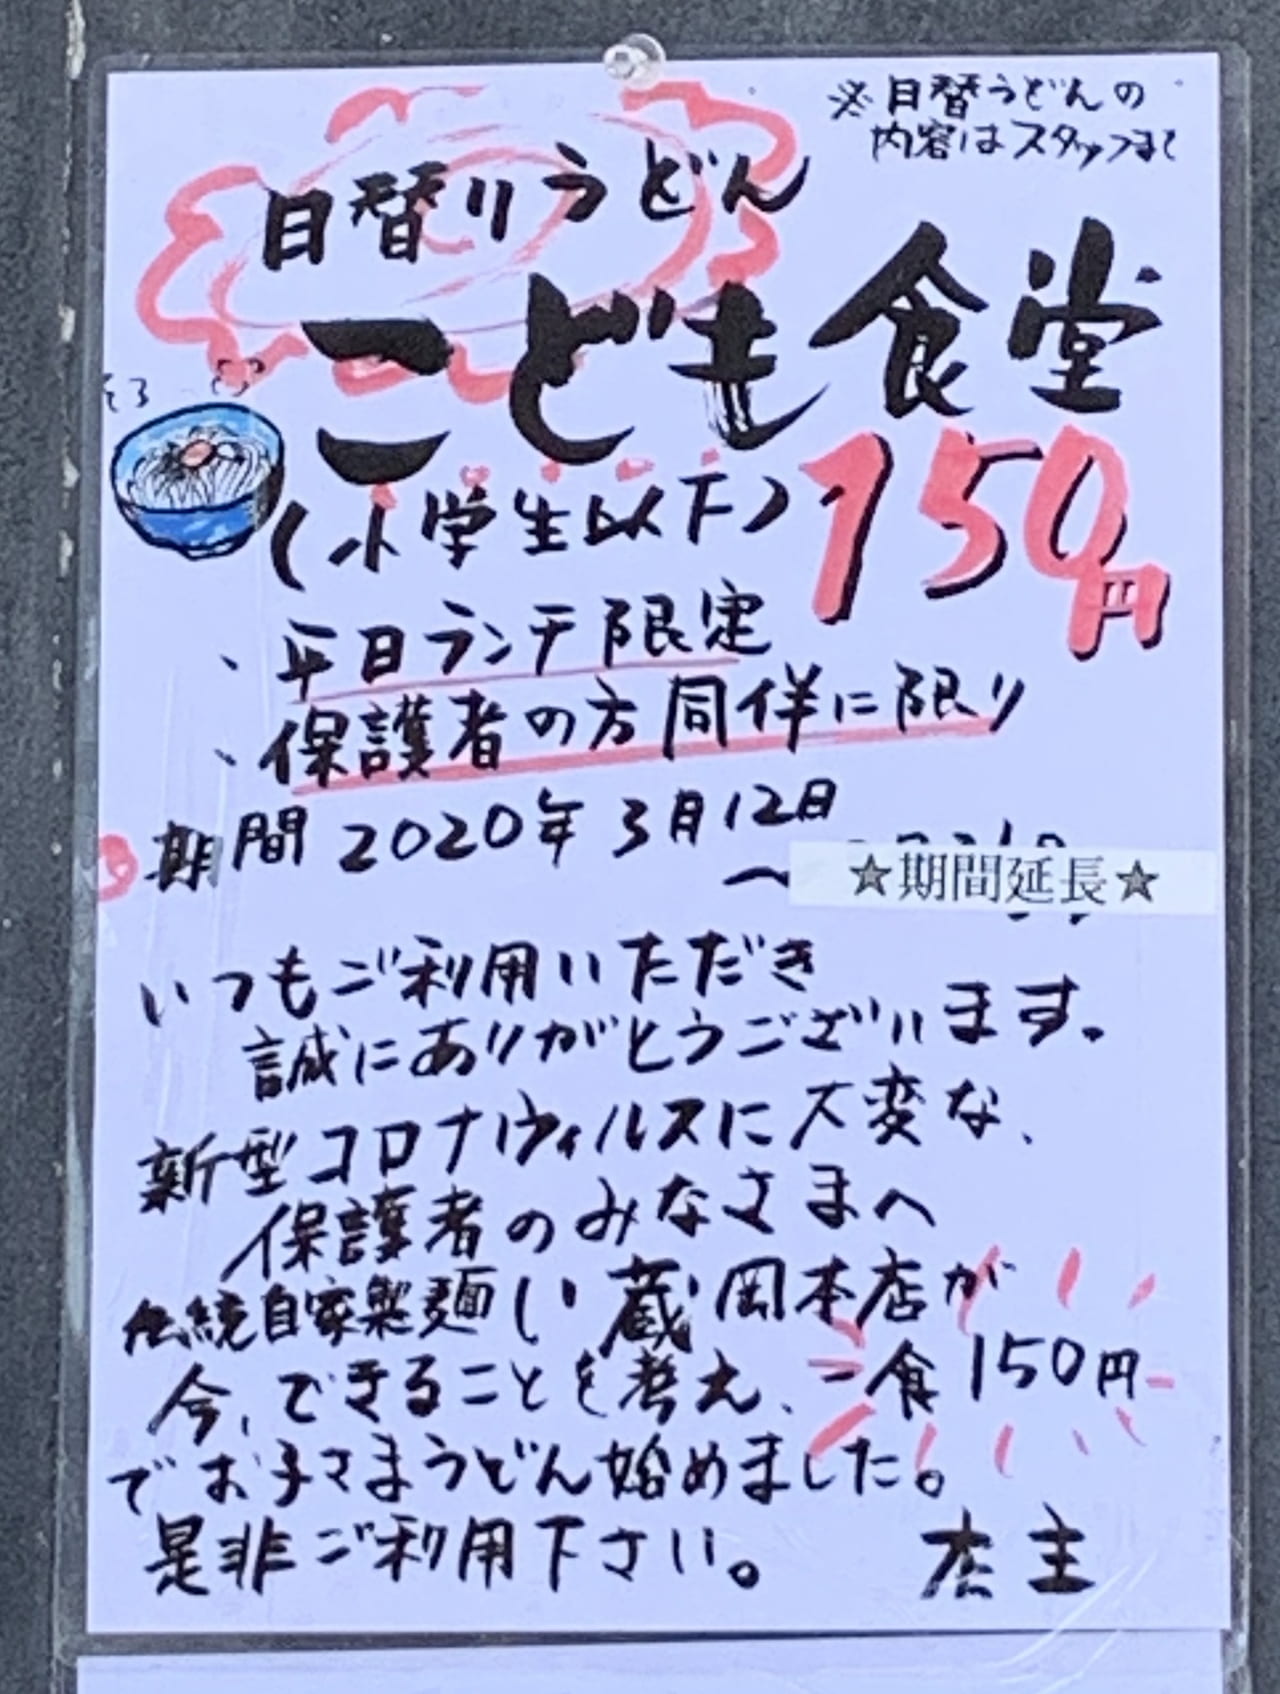 ※日替うどんの
内容はスタッフまで
日替りうどん
こども食堂
(小学生以下)
150円
・平日ランチ限定
・保護者の方同伴に限り
期間 2020年3月12日
〜
☆期間延長☆
いつもご利用いただき
誠にありがとうございます。
新型コロナウィルスに大変な、
保護者のみなさまへ
伝統自家製麺い蔵岡本店が
今、できることを考え、一食150円
でお子さまうどん始めました。
是非ご利用下さい。 店主